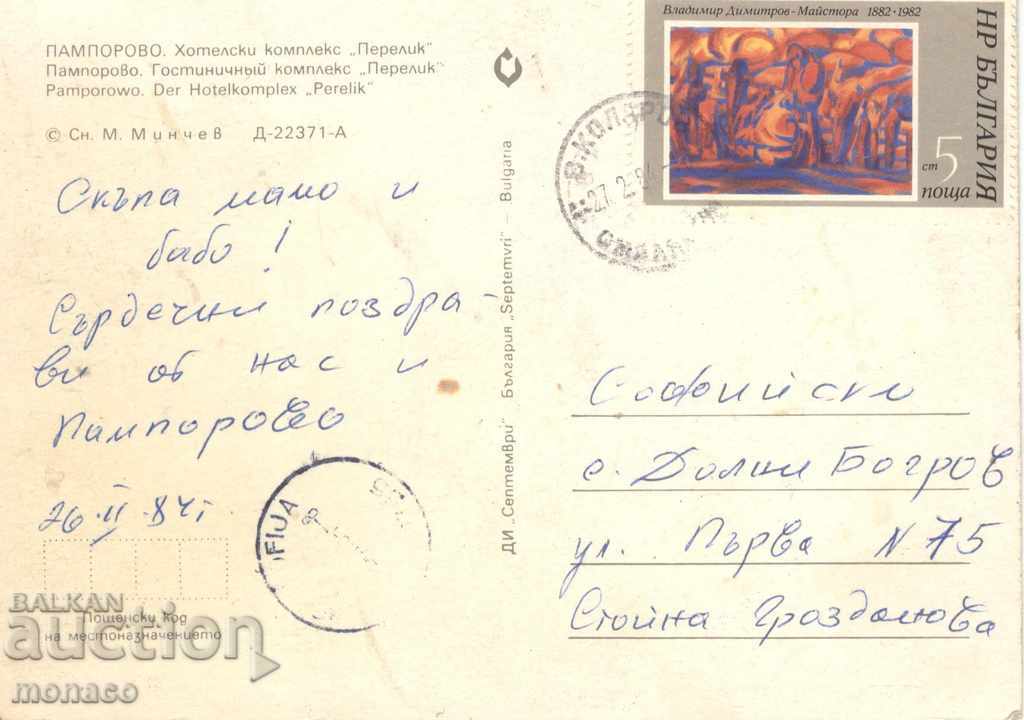 ПАМПОРОВО. Хотелски комплекс „Перелик"
Пампорово. Гостиничный комплекс „Перелик"
Pamporowo. Der Hotelkomplex „Perelik"
© Сн. М. Минчев Д-22371-А
Скъпа мамо и
бабо!
Сърдечни поздра-
ви от нас и
Пампорово
26.II.84г
Пощенски код
на местоназначението
ДИ „Септември" България „Septemvri" – Bulgaria
Владимир Димитров-Майстора 1882•1982
НР БЪЛГАРИЯ
5
ст
поща
27.2.84
Софийски
с. Долни Богров
ул. Първа N 75
Стойна Гроздanова
BALKAN
auction
monaco